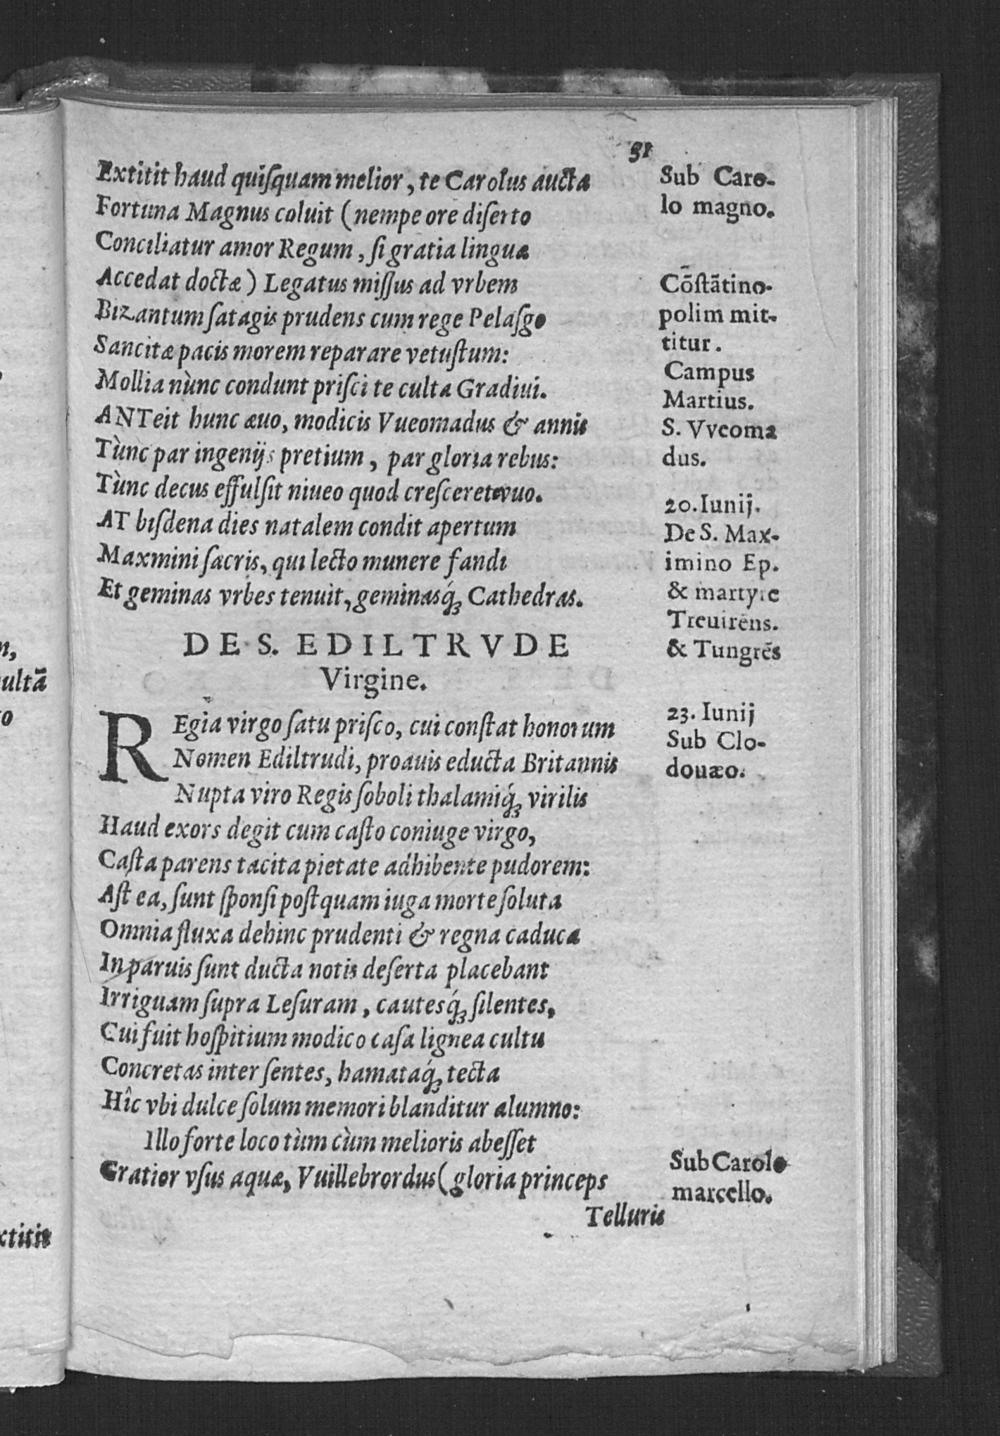 51
Extitit haud quiſquam melior, te Carolus aucta
Fortuna Magnus coluit (nempe ore diſerto
Conciliatur amor Regum, ſi gratia linguæ
Accedat doctæ) Legatus miſſus ad vrbem
Bizantum ſatagis prudens cum rege Pelaſgo
Sancitæ pacis morem reparare vetuſtum:
Mollia nùnc condunt priſci te culta Gradiui.
ANTeit hunc æuo, modicis Vueomadus & annis
Tùnc par ingenijs pretium, par gloria rebus:
Tùnc decus effulſit niueo quod creſceret ævuo.
AT biſdena dies natalem condit apertum
Maxmini ſacris, qui lecto munere fandi
Et geminas vrbes tenuit, geminasq́ꝫ Cathedras.
Sub Caro-
lo magno.
Cōſtātino-
polim mit-
titur.
Campus
Martius.
S. Vveoma
dus.
20. Iunij.
De S. Max-
imino Ep.
& martyre
Treuirēns.
& Tungrēs
DE S. EDILTRVDE
Virgine.
REgia virgo ſatu priſco, cui conſtat honorum
Nomen Ediltrudi, proauis educta Britannis
Nupta viro Regis ſoboli thalamiq́ꝫ virilis
Haud exors degit cum caſto coniuge virgo,
Caſta parens tacita pietate adhibente pudorem:
Aſt ea, ſunt ſponſi poſtquam iuga morte ſoluta
Omnia fluxa dehinc prudenti & regna caduca
In paruis ſunt ducta notis deſerta placebant
Irriguam ſupra Leſuram, cautesq́ꝫ ſilentes,
Cui fuit hoſpitium modico caſa lignea cultu
Concretas inter ſentes, hamataq́ꝫ tecta
Hîc vbi dulce ſolum memori blanditur alumno:
Illo forte loco tùm cùm melioris abeſſet
Gratior vſus aquæ, Vuillebrordus (gloria princeps
23. Iunij
Sub Clo-
douæo.
Sub Carolo
marcello.
Telluris
n,
ultā
o
xtitit